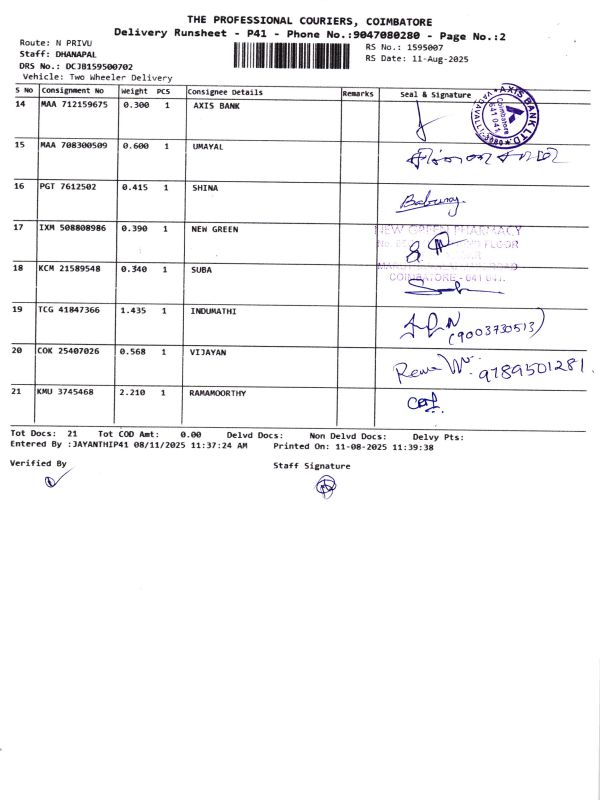 THE PROFESSIONAL COURIERS, COIMBATORE
Delivery Runsheet - P41 - Phone No.:9047080280 - Page No.:2
Route: N PRIVU
Staff: DHANAPAL
DRS No.: DCJB159500702
Vehicle: Two Wheeler Delivery
RS No.: 1595007
RS Date: 11-Aug-2025
S No Consignment No Weight PCS Consignee Details Remarks Seal & Signature
14 MAA 712159675 0.300 1 AXIS BANK
AXIS BANK LTD
Coimbatore
641 041
15 MAA 708300509 0.600 1 UMAYAL
16 PGT 7612502 0.415 1 SHINA
17 IXM 508808986 0.390 1 NEW GREEN
NEW GREEN PHARMACY
FLOOR
COIMBATORE - 641 041.
18 KCM 21589548 0.340 1 SUBA
19 TCG 41847366 1.435 1 INDUMATHI
(9003730513)
20 COK 25407026 0.568 1 VIJAYAN
9789501281.
21 KMU 3745468 2.210 1 RAMAMOORTHY
Tot Docs: 21 Tot COD Amt: 0.00 Delvd Docs: Non Delvd Docs: Delvy Pts:
Entered By :JAYANTHIP41 08/11/2025 11:37:24 AM Printed On: 11-08-2025 11:39:38
Verified By
Staff Signature